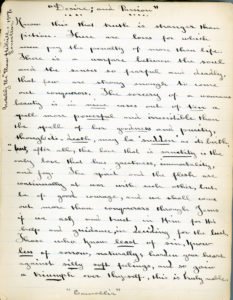 "Desire, and Passion"
Know this that truth is stranger than
fiction. There are loves for which
men pay the penalty of more than life.
There is a warfare between the soul
and the senses so fearful and deadly,
that few are strong enough to come
out conquerors. The sorcery of a womans
beauty is in nine cases out of ten a
spell more powerful and irresistible than
the spell of her goodness and purity,
though its death, may be sudden as its birth,
but, after all, the love that is sanctity is the
only love that has, greatness, immortality,
and joy. The spirit and the flesh are
continually at war with each other, but,
be of good courage, and we shall come
out more than conquerors through Jesus
if we ask and trust in Him for His
help and guidance, in deciding for the best.
Those who know least of sin, know
less of sorrow, naturally harden your heart
against silly soft feelings, and so gain
a triumph over thyself, this is truly noble
"Counsellor"